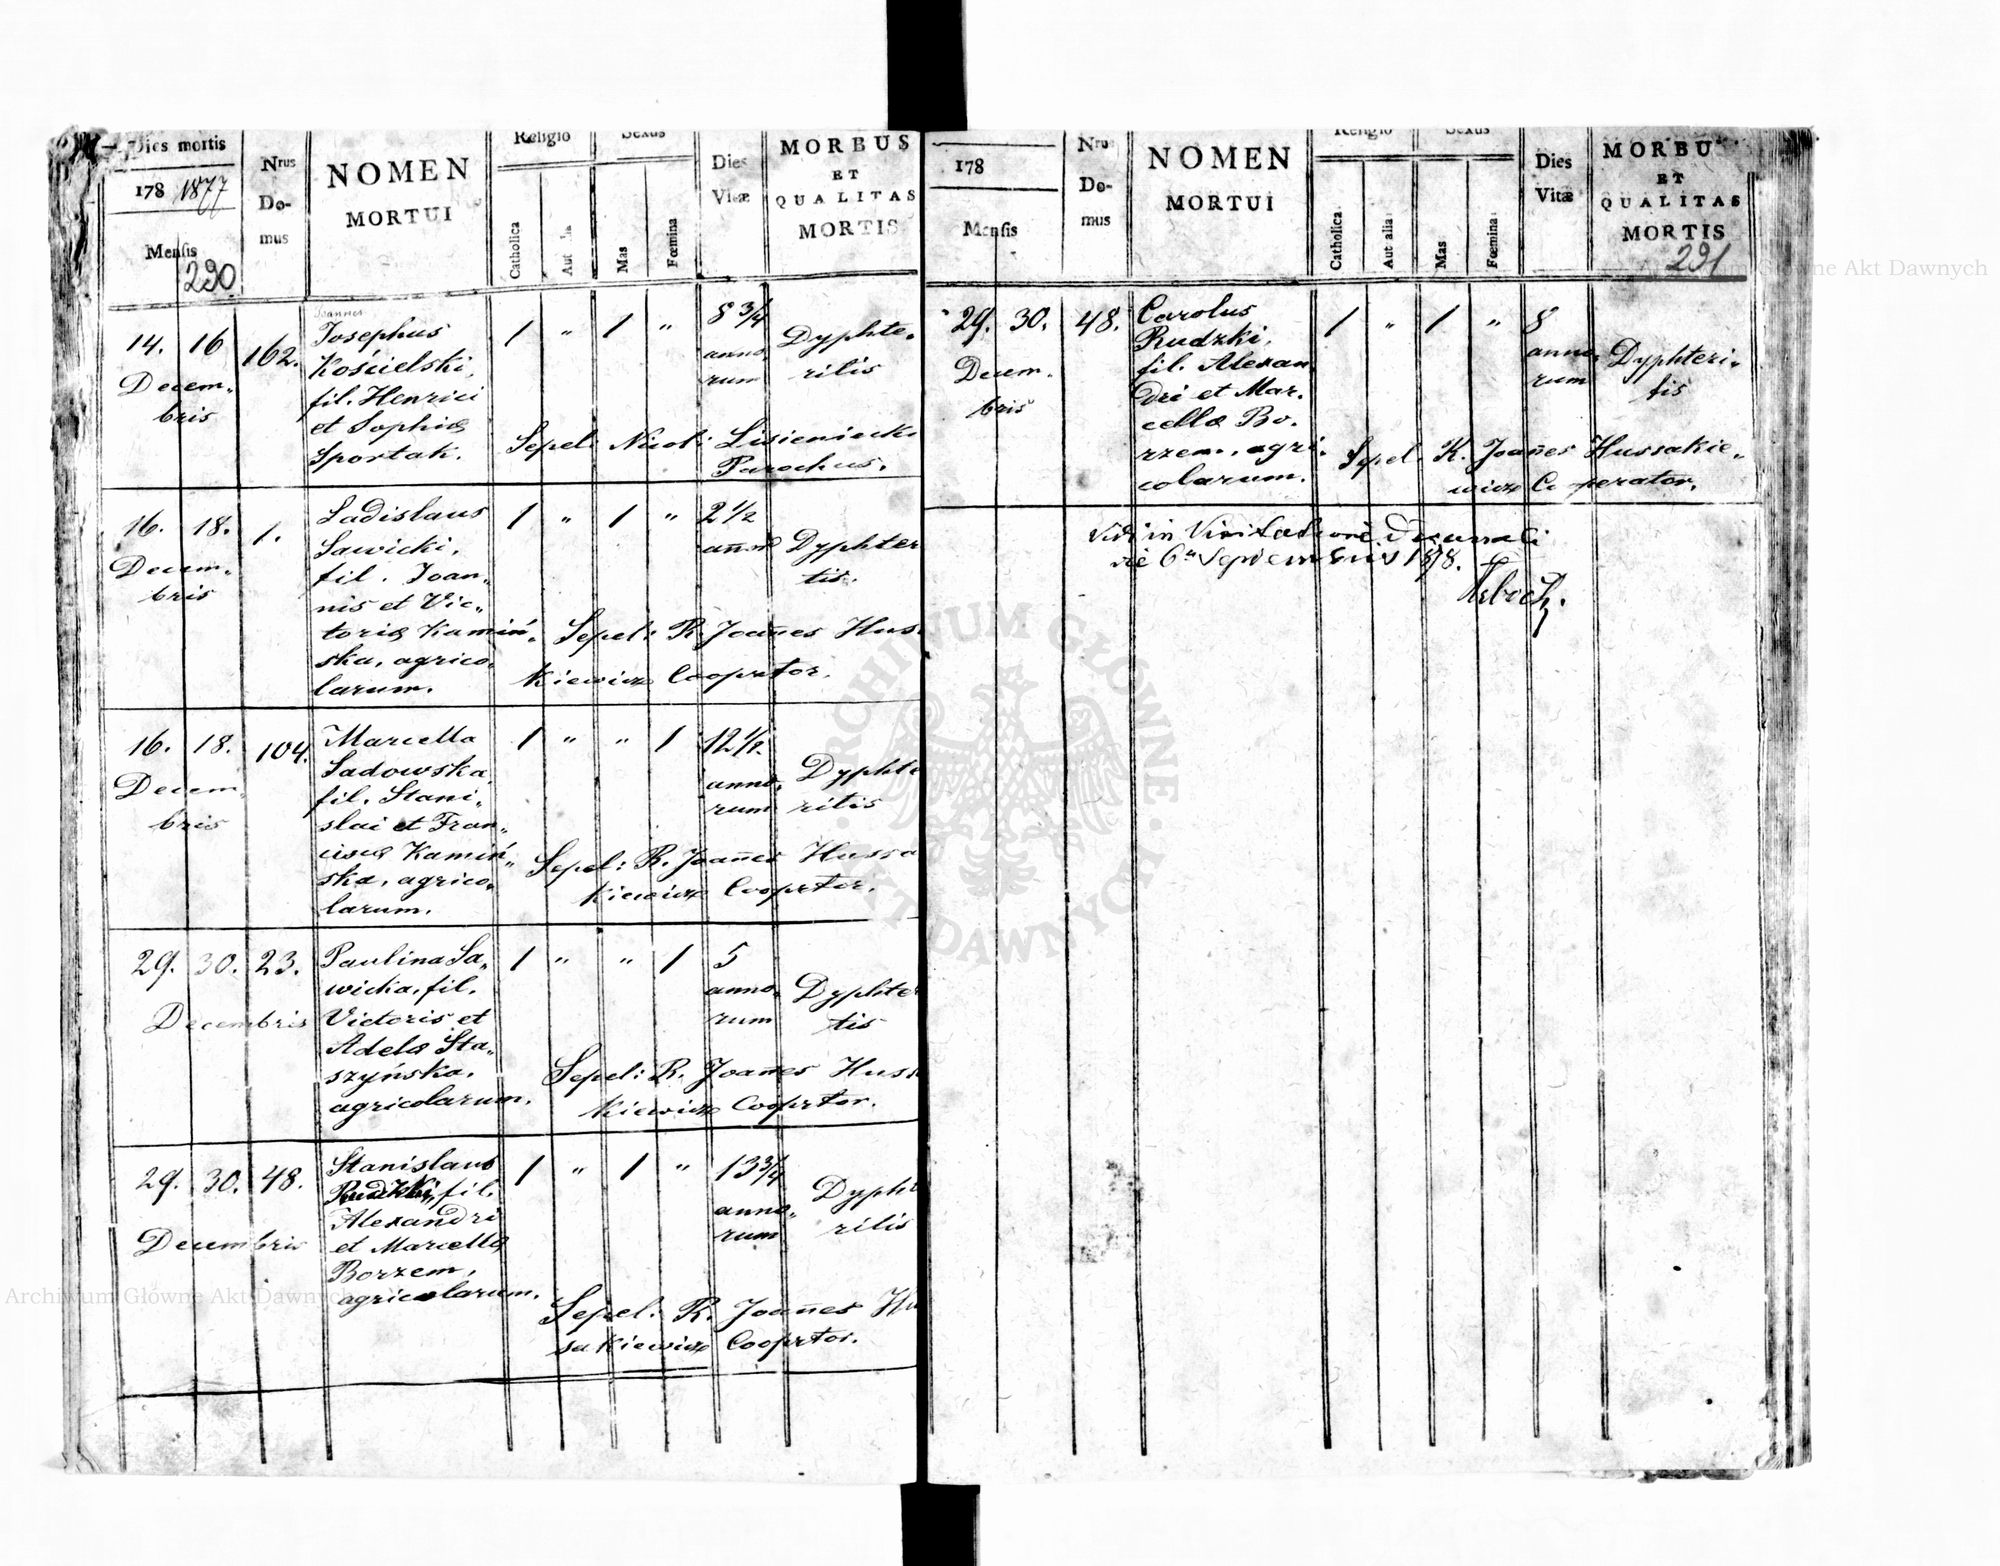 Dies mortis
178 1877
Mensis
290
Nrus
Do-
mus
NOMEN
MORTUI
Religio
Catholica
Aut
Sexus
Mas
Fœmina
Dies
Vitæ
MORBUS
ET
QUALITAS
MORTIS
14. 16 162.
Decem-
bris
Joannes
Josephus
Kościelski,
fil. Henrici
et Sophiæ
Sportak.
1 " 1 "
8 3/4
anno
rum
Dyphte-
ritis
Sepel: Nicol: Lisieniecki
Parochus.
16. 18. 1.
Decem-
bris
Ladislaus
Sawicki,
fil. Joan-
nis et Vic-
toriæ Kamiń-
ska, agrico-
larum.
1 " 1 "
2 1/2
Dyphter
tis.
Sepel: R. Joañes Hus
kiewicz Cooprtor.
16. 18. 104.
Decem-
bris
Marcella
Sadowska,
fil. Stani-
slai et Fran-
ciscæ Kamiń-
ska, agrico-
larum.
1 " " 1
12 1/2
anno-
rum
Dyphte
ritis
Sepel: R. Joañes Hussa
kiewicz Cooprtor.
29. 30. 23.
Decembris
Paulina Sa-
wicka, fil.
Victoris et
Adelæ Sta-
szyńska,
agricolarum.
1 " " 1
5
anno-
rum
Dyphte
tis
Sepel: R. Joañes Huss
kiewicz Cooprtor.
29. 30. 48.
Decembris
Stanislaus
Rudzki, fil.
Alexandri
et Marcellæ
Borzem,
agricolarum.
1 " 1 "
13 3/4
anno-
rum
Dypht
ritis
Sepel: R. Joañes Hu
sakiewicz Cooprtor.
178
Mensis
Nrus
Do-
mus
NOMEN
MORTUI
Religio
Catholica
Aut alia
Sexus
Mas
Fœmina
Dies
Vitæ
MORBU
ET
QUALITAS
MORTIS
291
29. 30. 48.
Decem-
bris
Carolus
Rudzki,
fil. Alexan
dri et Mar-
cellæ Bo-
rzem, agri-
colarum.
1 " 1 "
8
anno-
rum
Dyphteri-
tis
Sepel. R. Joañes Hussakie-
wicz Cooperator.
Vidi in Visitatione Decanali
die 6ta Septembris 1878.
ARCHIWUM GŁÓWNE AKT DAWNYCH
Archiwum Główne Akt Dawnych
Archiwum Główne Akt Dawnych